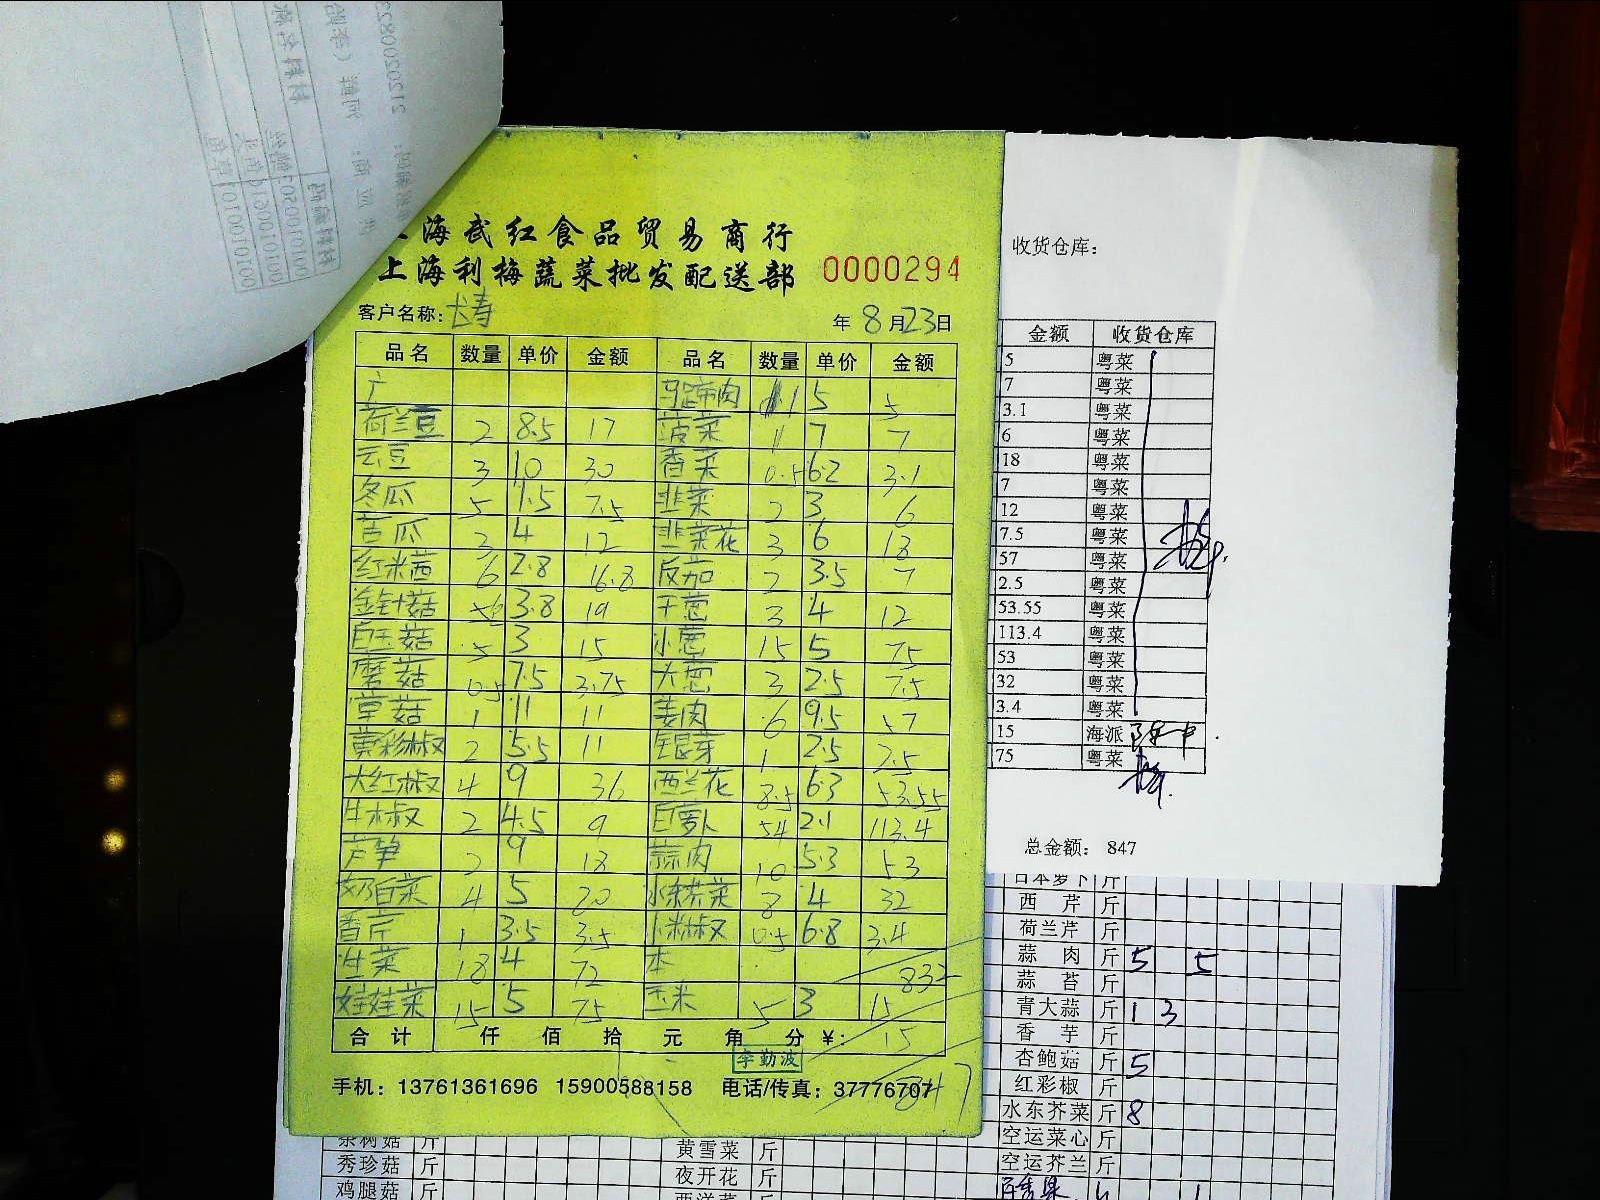 上海武红食品贸易商行
上海利梅蔬菜批发配送部 0000294
客户名称: 长寿 年 8 月 23 日
品名 数量 单价 金额 品名 数量 单价 金额
广 马蹄肉 1 5 5
荷兰豆 2 8.5 17 菠菜 1 7 7
云豆 3 10 30 香菜 0.5 6.2 3.1
冬瓜 5 1.5 7.5 韭菜 2 3 6
苦瓜 3 4 12 韭菜花 3 6 18
红米茜 6 2.8 16.8 反茄 2 3.5 7
金针菇 3.8 19 干葱 3 4 12
白玉菇 5 3 15 小葱 15 5 75
磨菇 0.5 7.5 3.75 大葱 3 2.5 7.5
草菇 1 11 11 姜肉 6 9.5 57
黄彩椒 2 5.5 11 银芽 1 2.5 2.5
大红椒 4 9 36 西兰花 8.5 6.3 53.55
牛椒 2 4.5 9 白萝卜 54 2.1 113.4
芦笋 2 9 18 蒜肉 10 5.3 53
奶白菜 4 5 20 水东芥菜 8 4 32
香芹 1 3.5 3.5 小米椒 0.5 6.8 3.4
生菜 18 4 72 本 832
娃娃菜 15 5 75 玉米 5 3 15
合计 仟 佰 拾 元 角 分 ¥: 15
李勤波
手机: 13761361696 15900588158 电话/传真: 37776707 847
收货仓库:
金额 收货仓库
5 粤菜
7 粤菜
3.1 粤菜
6 粤菜
18 粤菜
7 粤菜
12 粤菜
7.5 粤菜
57 粤菜
2.5 粤菜
53.55 粤菜
113.4 粤菜
53 粤菜
32 粤菜
3.4 粤菜
15 海派
75 粤菜
总金额: 847
日本萝卜 斤
西芹 斤
荷兰芹 斤
蒜肉 斤 5 5
蒜苔 斤
青大蒜 斤 1 3
香芋 斤
杏鲍菇 斤 5
红彩椒 斤
水东芥菜 斤 8
空运菜心 斤
空运芥兰 斤
茶树菇 斤 黄雪菜 斤
秀珍菇 斤 夜开花 斤
鸡腿菇 斤 西洋菜 斤